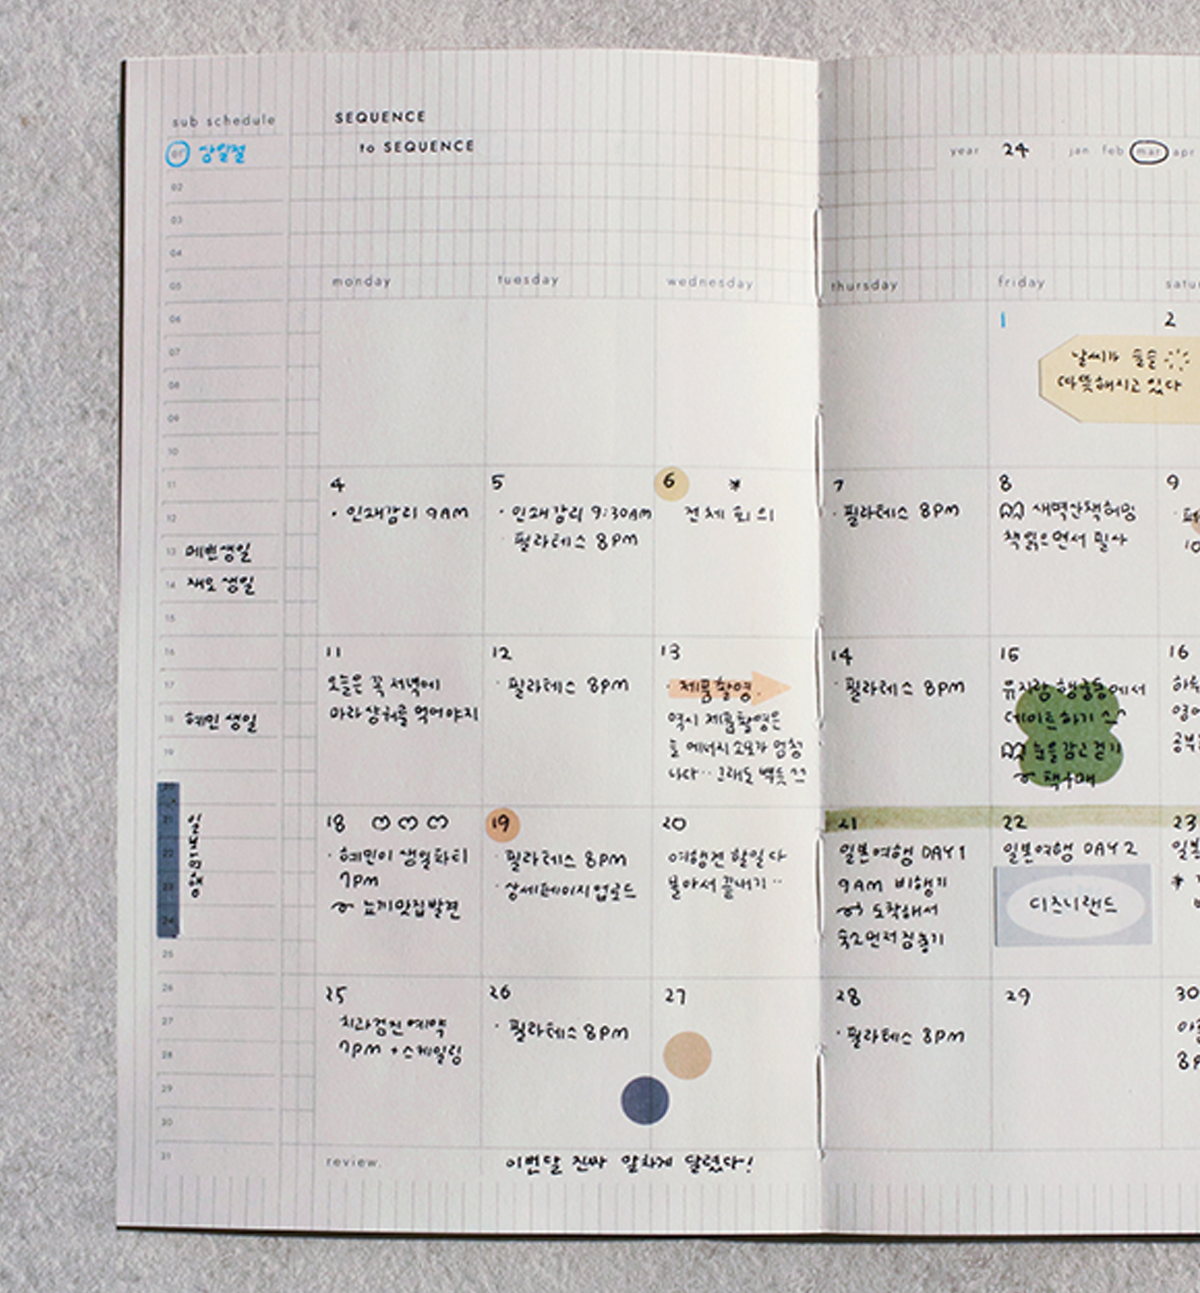 sub schedule
SEQUENCE
to SEQUENCE
01 삼일절
year 24 jan feb mar apr
02
03
04
05
06
07
08
09
10
11
12
13 예쁜생일
14 재오 생일
15
16
17
18 혜인 생일
19
20
21
22
23
24
25
26
27
28
29
30
31
일본여행
monday tuesday wednesday thursday friday satu
1
2
날씨가 슬슬
따뜻해지고 있다
4
· 인쇄감리 9AM
5
· 인쇄감리 9:30AM
· 필라테스 8PM
6 *
전체 회의
7
· 필라테스 8PM
8
새벽산책허밍
책읽으면서 필사
9
10
11
오늘은 꼭 저녁에
마라샹궈를 먹어야지
12
· 필라테스 8PM
13
· 제품촬영.
역시 제품촬영은
늘 에너지 소모가 엄청
나다.. 그래도 뿌듯
14
· 필라테스 8PM
15
유지랑 행궁동에서
데이트하기
눈을감고걷기
책구매
16
18
· 혜인이 생일파티
7PM
느끼맛집발견
19
· 필라테스 8PM
· 상세페이지업로드
20
여행전 할일 다
몰아서 끝내기..
21
일본여행 DAY 1
9AM 비행기
도착해서
숙소먼저 짐놓기
22
일본여행 DAY 2
디즈니랜드
23
25
치과검진예약
7PM + 스케일링
26
· 필라테스 8PM
27
28
· 필라테스 8PM
29
30
review.
이번달 진짜 알차게 달렸다!